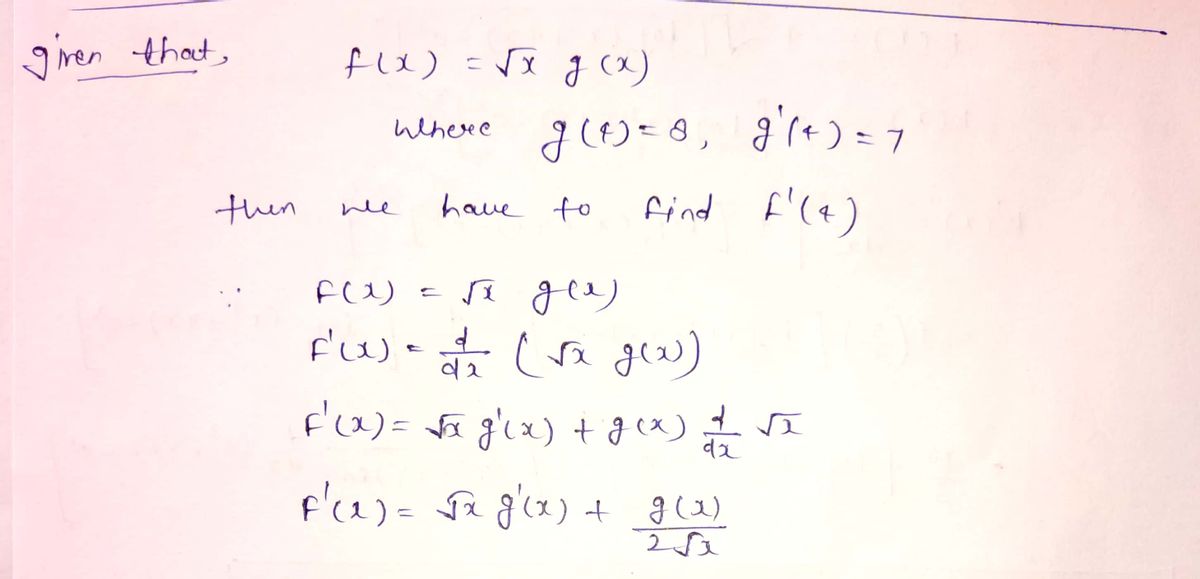 given that, f(x) = √x g(x)
where g(4) = 8, g'(4) = 7
then we have to find f'(4)
∵ f(x) = √x g(x)
f'(x) = d/dx (√x g(x))
f'(x) = √x g'(x) + g(x) d/dx √x
f'(x) = √x g'(x) + g(x)/2√x